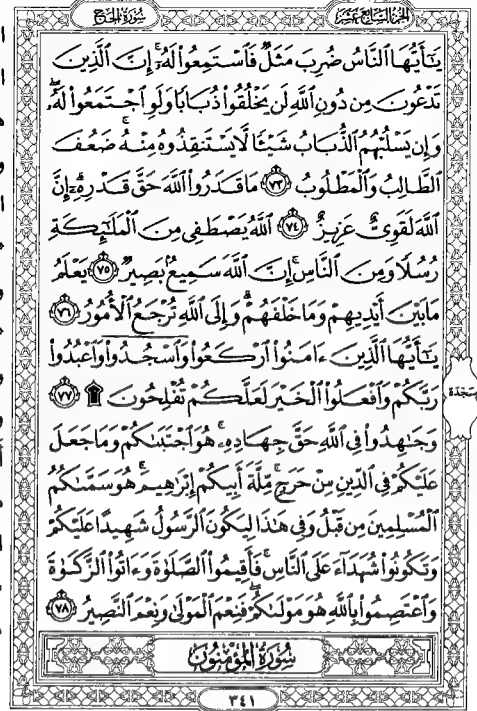 سُورَةُ الحَجِّ الجُزْءُ السَّابِعَ عَشَرَ
يَٰٓأَيُّهَا ٱلنَّاسُ ضُرِبَ مَثَلٌ فَٱسْتَمِعُوا۟ لَهُۥٓ ۚ إِنَّ ٱلَّذِينَ
تَدْعُونَ مِن دُونِ ٱللَّهِ لَن يَخْلُقُوا۟ ذُبَابًا وَلَوِ ٱجْتَمَعُوا۟ لَهُۥ ۖ
وَإِن يَسْلُبْهُمُ ٱلذُّبَابُ شَيْـًٔا لَّا يَسْتَنقِذُوهُ مِنْهُ ۚ ضَعُفَ
ٱلطَّالِبُ وَٱلْمَطْلُوبُ ٧٣ مَا قَدَرُوا۟ ٱللَّهَ حَقَّ قَدْرِهِۦٓ ۗ إِنَّ
ٱللَّهَ لَقَوِىٌّ عَزِيزٌ ٧٤ ٱللَّهُ يَصْطَفِى مِنَ ٱلْمَلَٰٓئِكَةِ
رُسُلًا وَمِنَ ٱلنَّاسِ ۚ إِنَّ ٱللَّهَ سَمِيعٌۢ بَصِيرٌ ٧٥ يَعْلَمُ
مَا بَيْنَ أَيْدِيهِمْ وَمَا خَلْفَهُمْ ۗ وَإِلَى ٱللَّهِ تُرْجَعُ ٱلْأُمُورُ ٧٦
يَٰٓأَيُّهَا ٱلَّذِينَ ءَامَنُوا۟ ٱرْكَعُوا۟ وَٱسْجُدُوا۟ وَٱعْبُدُوا۟
رَبَّكُمْ وَٱفْعَلُوا۟ ٱلْخَيْرَ لَعَلَّكُمْ تُفْلِحُونَ ۩ ٧٧
سَجْدَة
وَجَٰهِدُوا۟ فِى ٱللَّهِ حَقَّ جِهَادِهِۦ ۚ هُوَ ٱجْتَبَىٰكُمْ وَمَا جَعَلَ
عَلَيْكُمْ فِى ٱلدِّينِ مِنْ حَرَجٍ ۚ مِّلَّةَ أَبِيكُمْ إِبْرَٰهِيمَ ۚ هُوَ سَمَّىٰكُمُ
ٱلْمُسْلِمِينَ مِن قَبْلُ وَفِى هَٰذَا لِيَكُونَ ٱلرَّسُولُ شَهِيدًا عَلَيْكُمْ
وَتَكُونُوا۟ شُهَدَآءَ عَلَى ٱلنَّاسِ ۚ فَأَقِيمُوا۟ ٱلصَّلَوٰةَ وَءَاتُوا۟ ٱلزَّكَوٰةَ
وَٱعْتَصِمُوا۟ بِٱللَّهِ هُوَ مَوْلَىٰكُمْ ۖ فَنِعْمَ ٱلْمَوْلَىٰ وَنِعْمَ ٱلنَّصِيرُ ٧٨
سُورَةُ المُؤْمِنُونَ
٣٤١